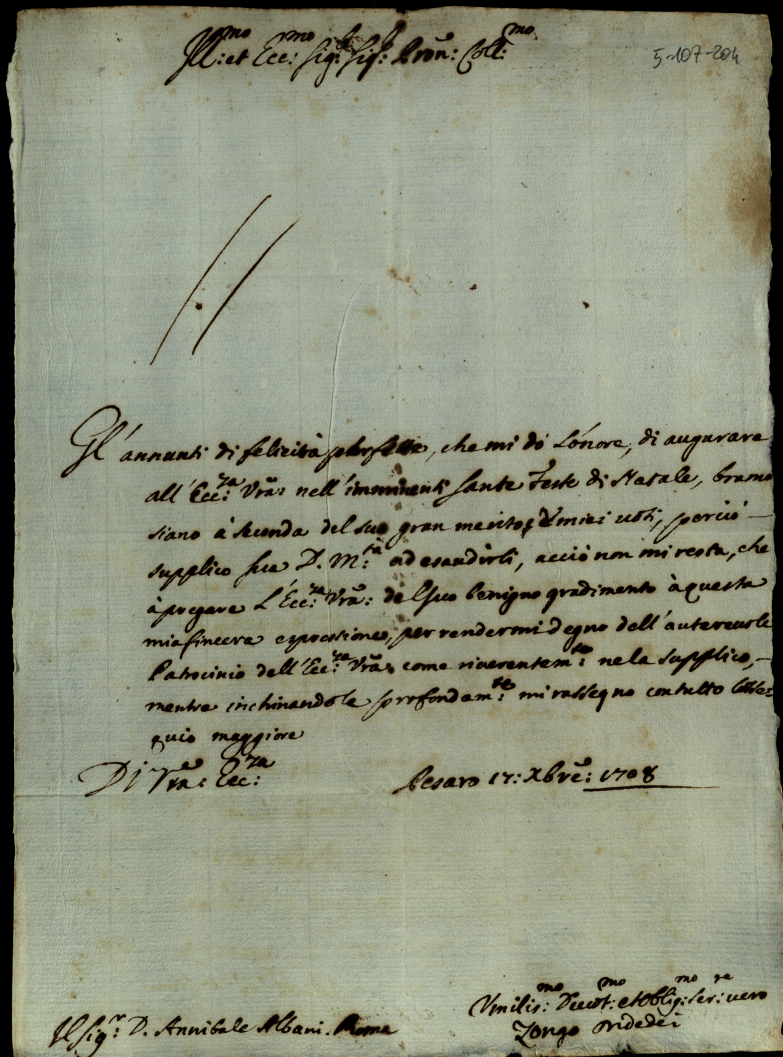 Ill:mo et Ecc:mo Sig:r Sig:r Pron: Coll:mo
5-107-204
Gl'annunti di felicità perfette, che mi dò l'onore, di augurare
all'Ecc:za Vra: nell'imminenti Sante Feste di Natale, bramo
siano à seconda del suo gran merito, e miei voti, perciò
supplico sua D. M:tà ad esaudirli, acciò non mi resta, che
à pregare l'Ecc:za Vra: del suo benigno gradimento à questa
mia sincera espressione, per rendermi degno dell'autorevole
Patrocinio dell'Ecc:za Vra: come riverentem:te ne la supplico,
mentre inchinandole profondam:te mi rassegno con tutto l'osse=
quio maggiore
Di Vra: Ecc:za Pesaro 17: Xbre: 1708
Umilis:mo Devot:mo et Oblig:mo Ser:re vero
Il Sig:r D. Annibale Albani. Roma
Zongo Ondedei